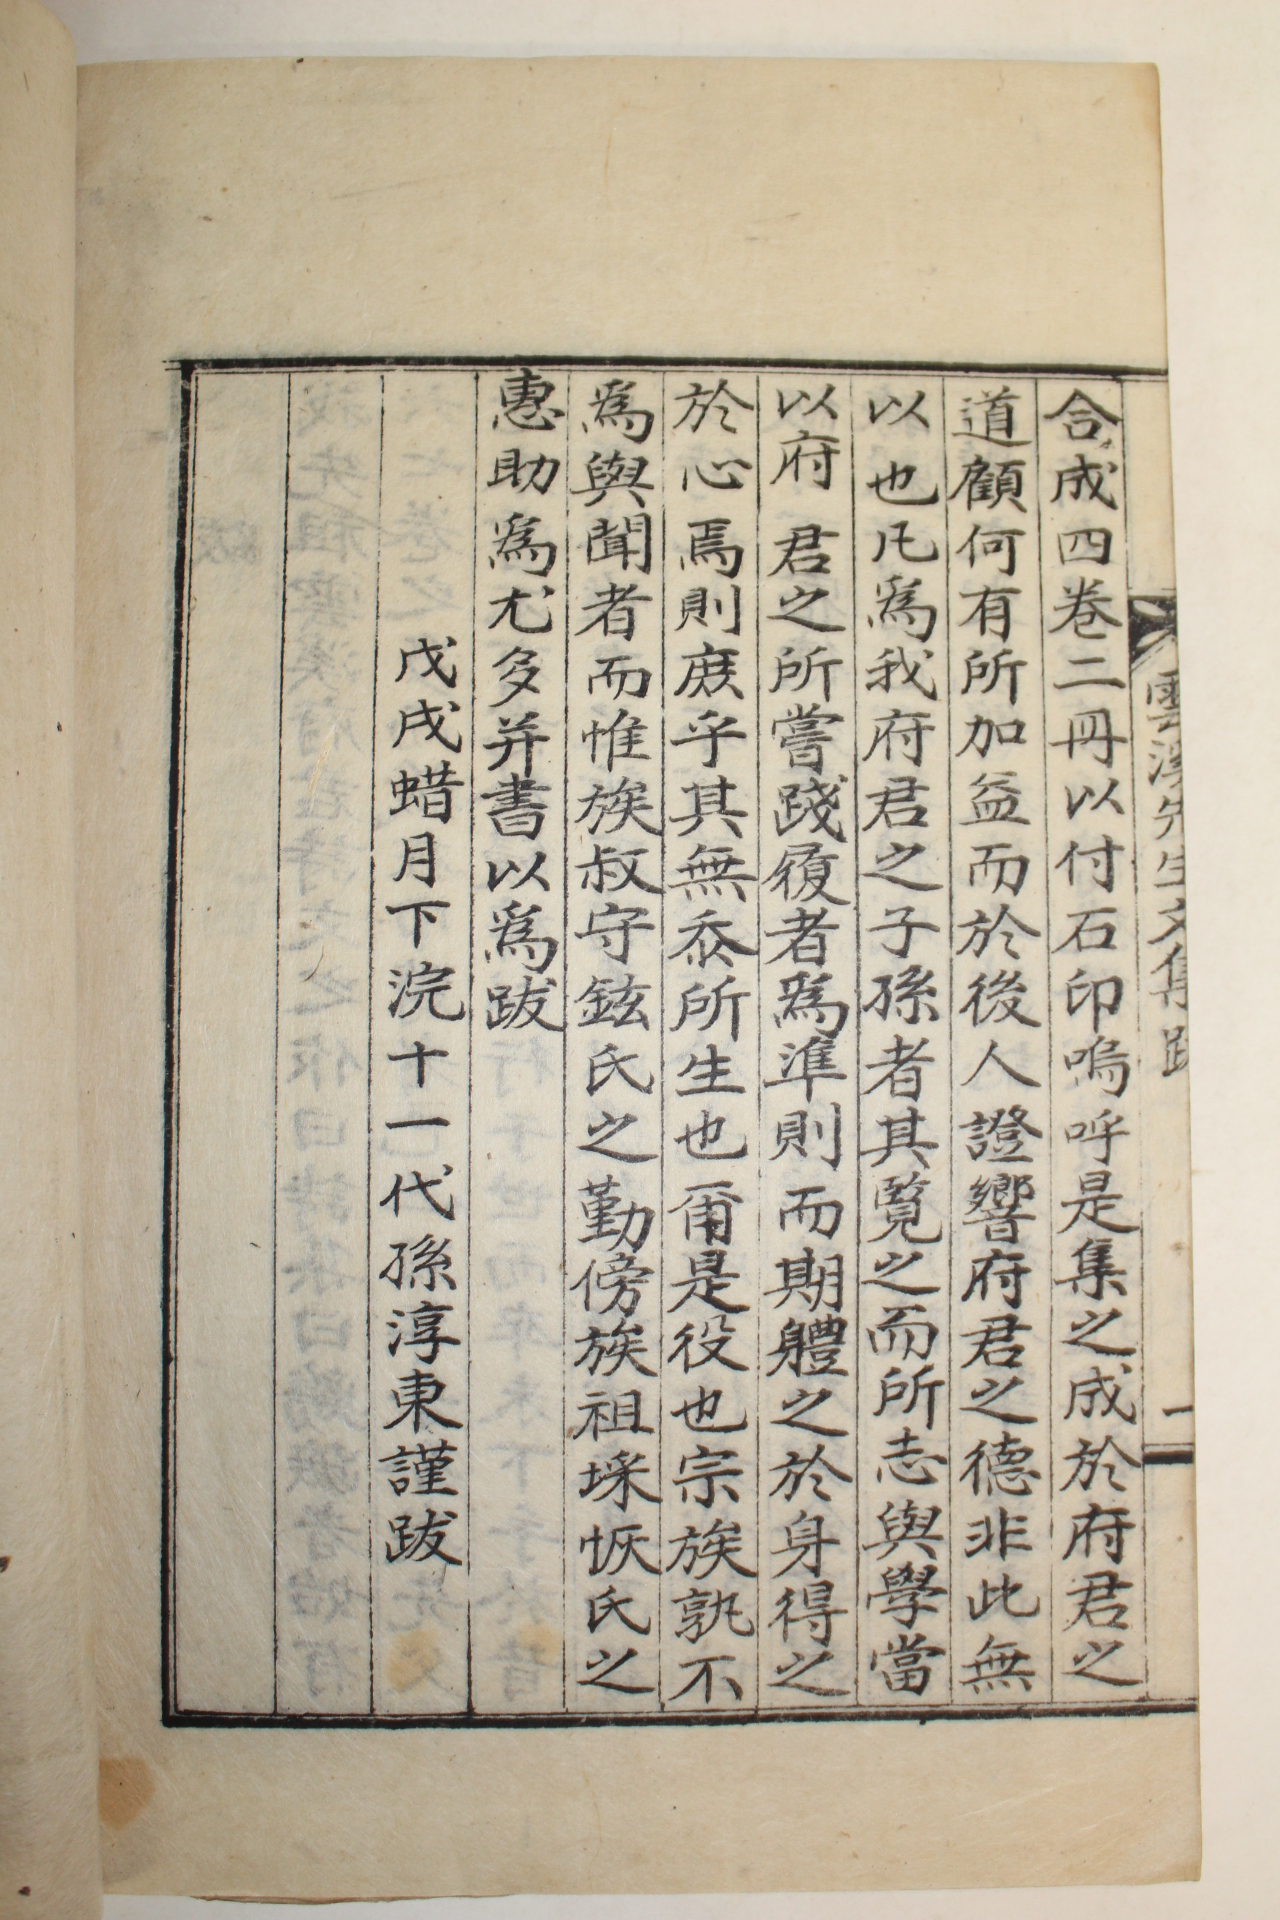 雲溪先生文集跋 一
合成四卷二冊以付石印嗚呼是集之成於府君之
道顧何有所加益而於後人證響府君之德非此無
以也凡爲我府君之子孫者其覽之而所志與學當
以府君之所嘗踐履者爲準則而期體之於身得之
於心焉則庶乎其無忝所生也爾是役也宗族孰不
爲與聞者而惟族叔守鉉氏之勤傍族祖埰恢氏之
惠助爲尤多并書以爲跋
戊戌蜡月下浣十一代孫淳東謹跋